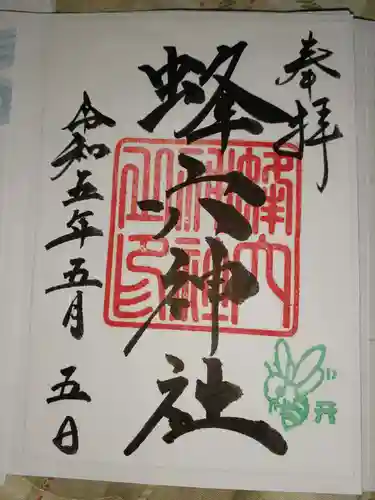 奉拝
蜂穴神社
令和五年五月五日
蜂穴神社之印